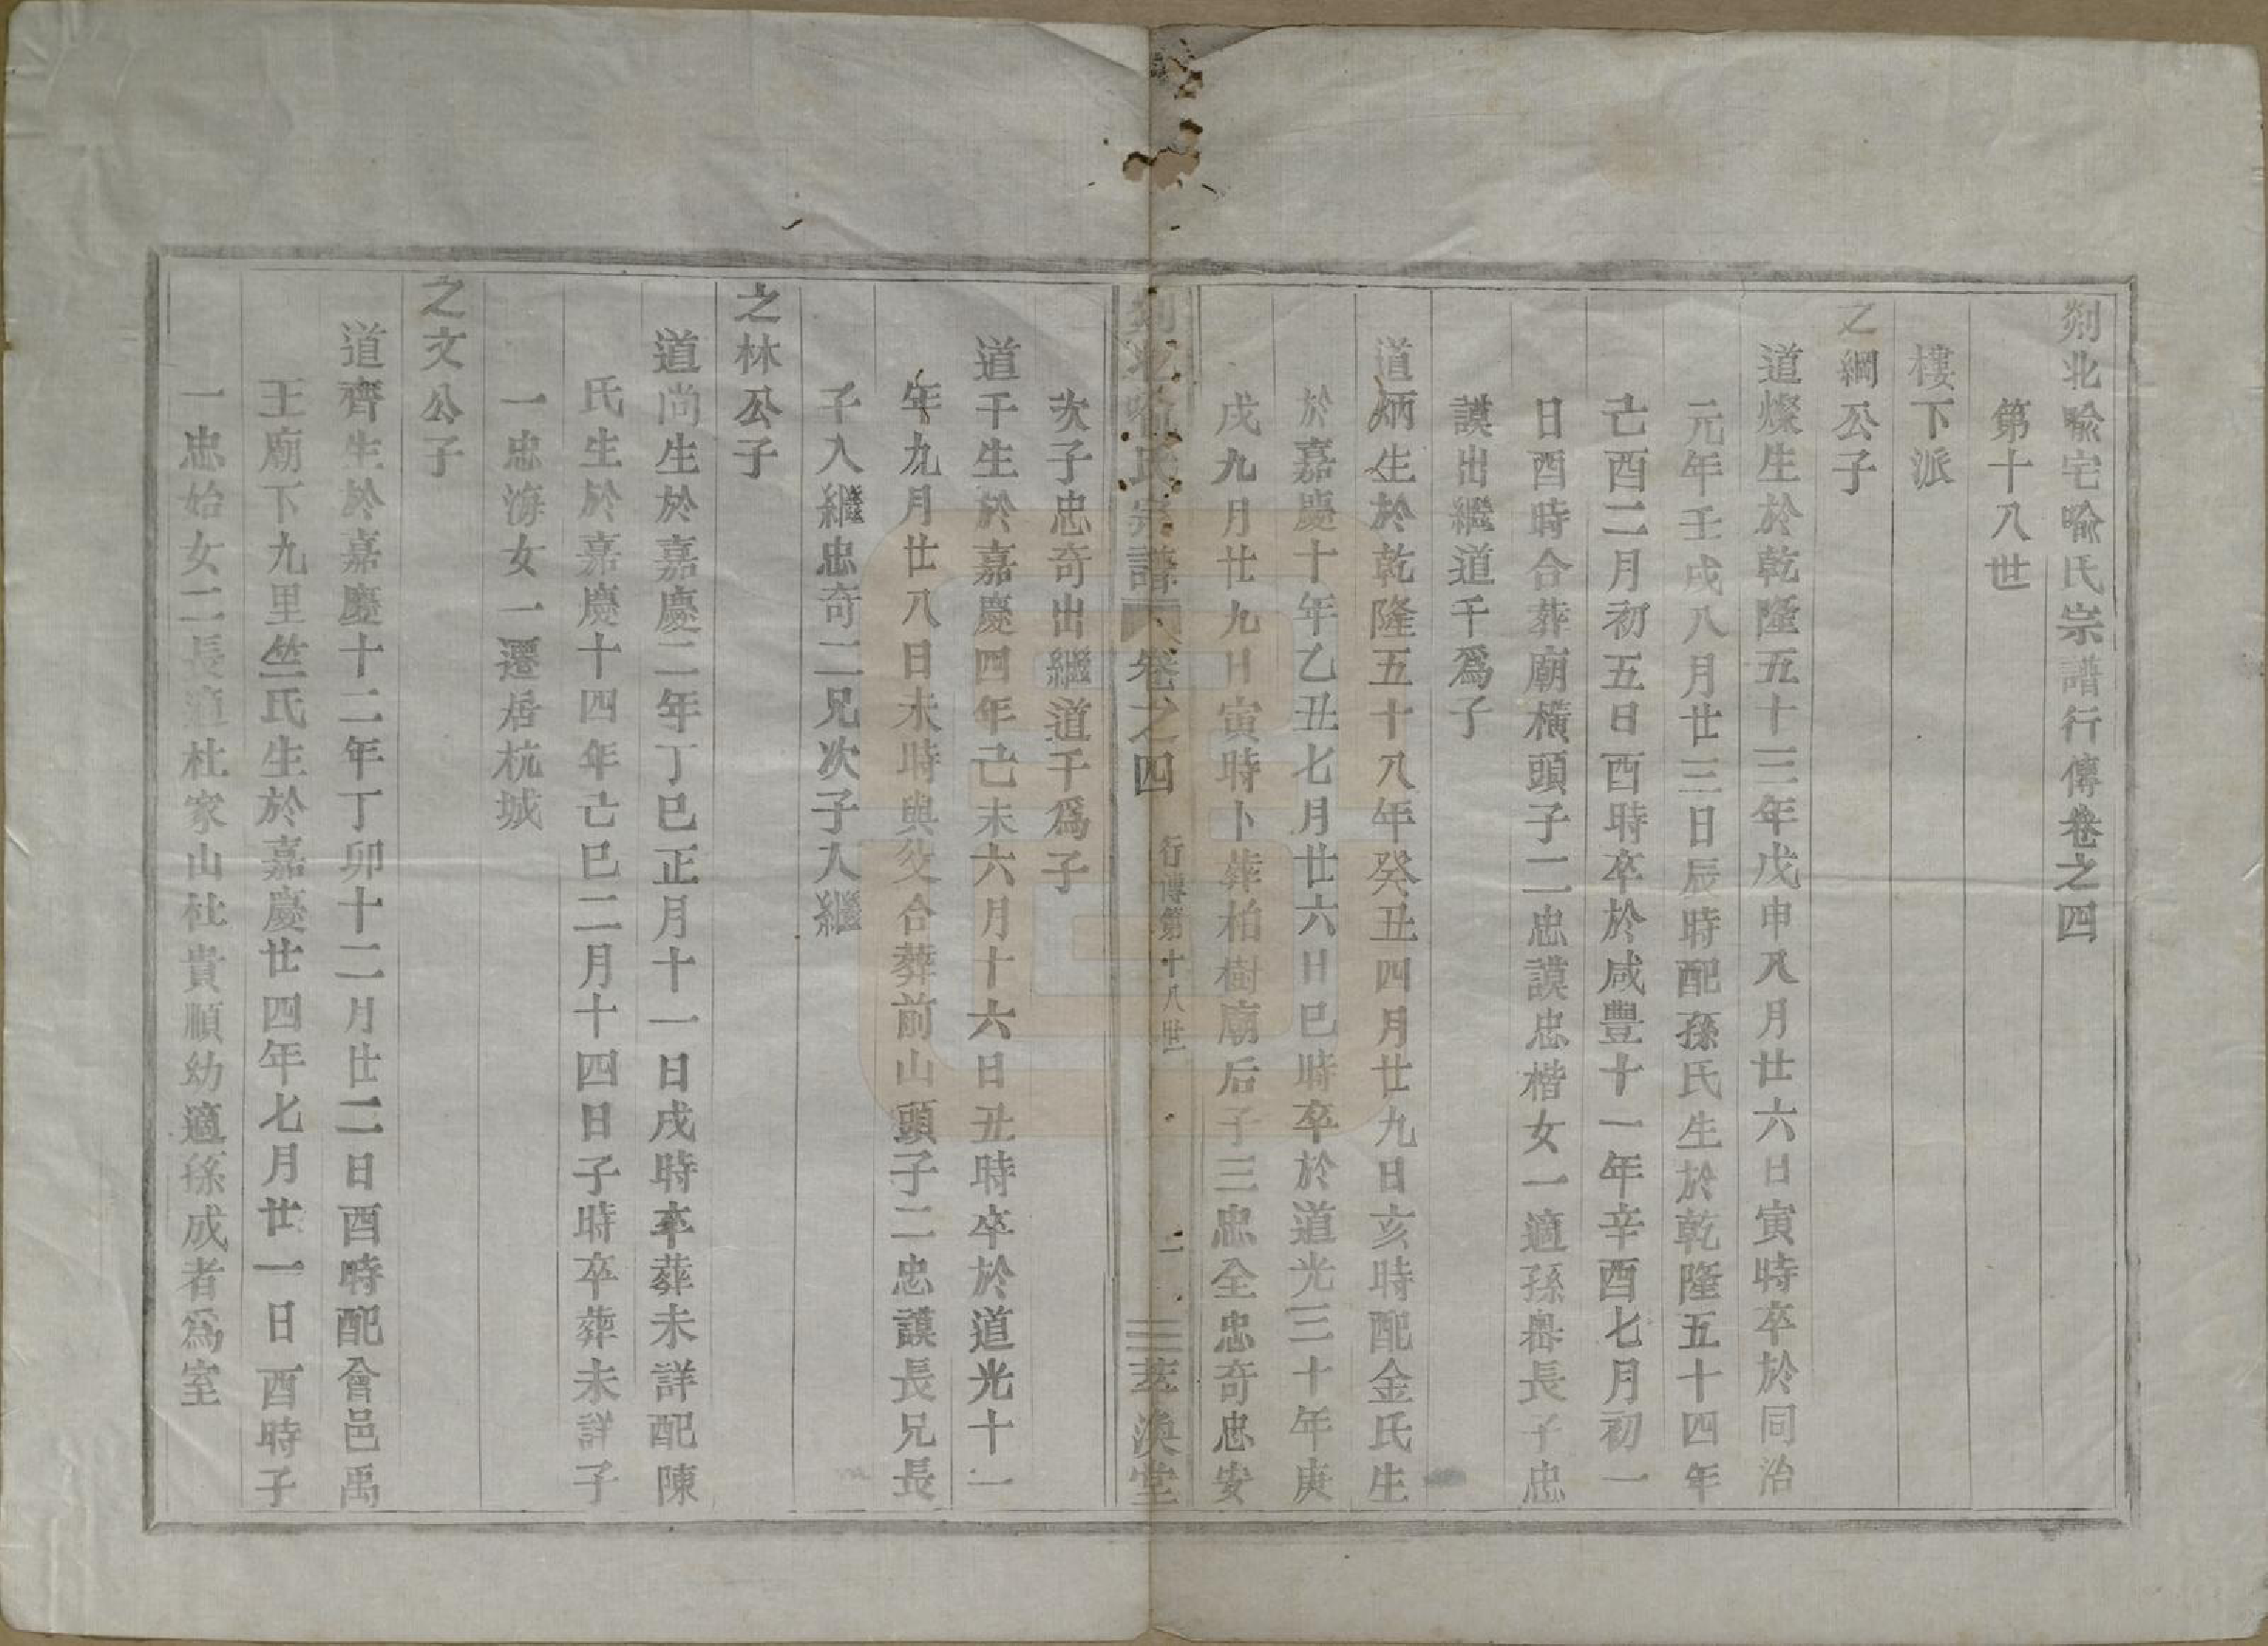 剡北喻宅喻氏宗譜行傳卷之四
第十八世
樓下派
之綱公子
道燦生於乾隆五十三年戊申八月廿六日寅時卒於同治
元年壬戌八月廿三日辰時配孫氏生於乾隆五十四年
己酉二月初五日酉時卒於咸豐十一年辛酉七月初一
日酉時合葬廟橫頭子二忠謨忠楷女一適孫嶴長子忠
謨出繼道千爲子
道炳生於乾隆五十八年癸丑四月廿九日亥時配金氏生
於嘉慶十年乙丑七月廿六日巳時卒於道光三十年庚
戌九月廿九日寅時卜葬柏樹廟后子三忠全忠奇忠安
次子忠奇出繼道千爲子
剡北喻氏宗譜 卷之四 行傳第十八世 一 萃渙堂
道千生於嘉慶四年己未六月十六日丑時卒於道光十一
年九月廿八日未時與父合葬前山頭子二忠謨長兄長
子入繼忠奇二兄次子入繼
之林公子
道尚生於嘉慶二年丁巳正月十一日戌時卒葬未詳配陳
氏生於嘉慶十四年己巳二月十四日子時卒葬未詳子
一忠海女一遷居杭城
之文公子
道齊生於嘉慶十二年丁卯十二月廿二日酉時配會邑禹
王廟下九里竺氏生於嘉慶廿四年七月廿一日酉時子
一忠始女二長適杜家山杜貴順幼適孫成者爲室